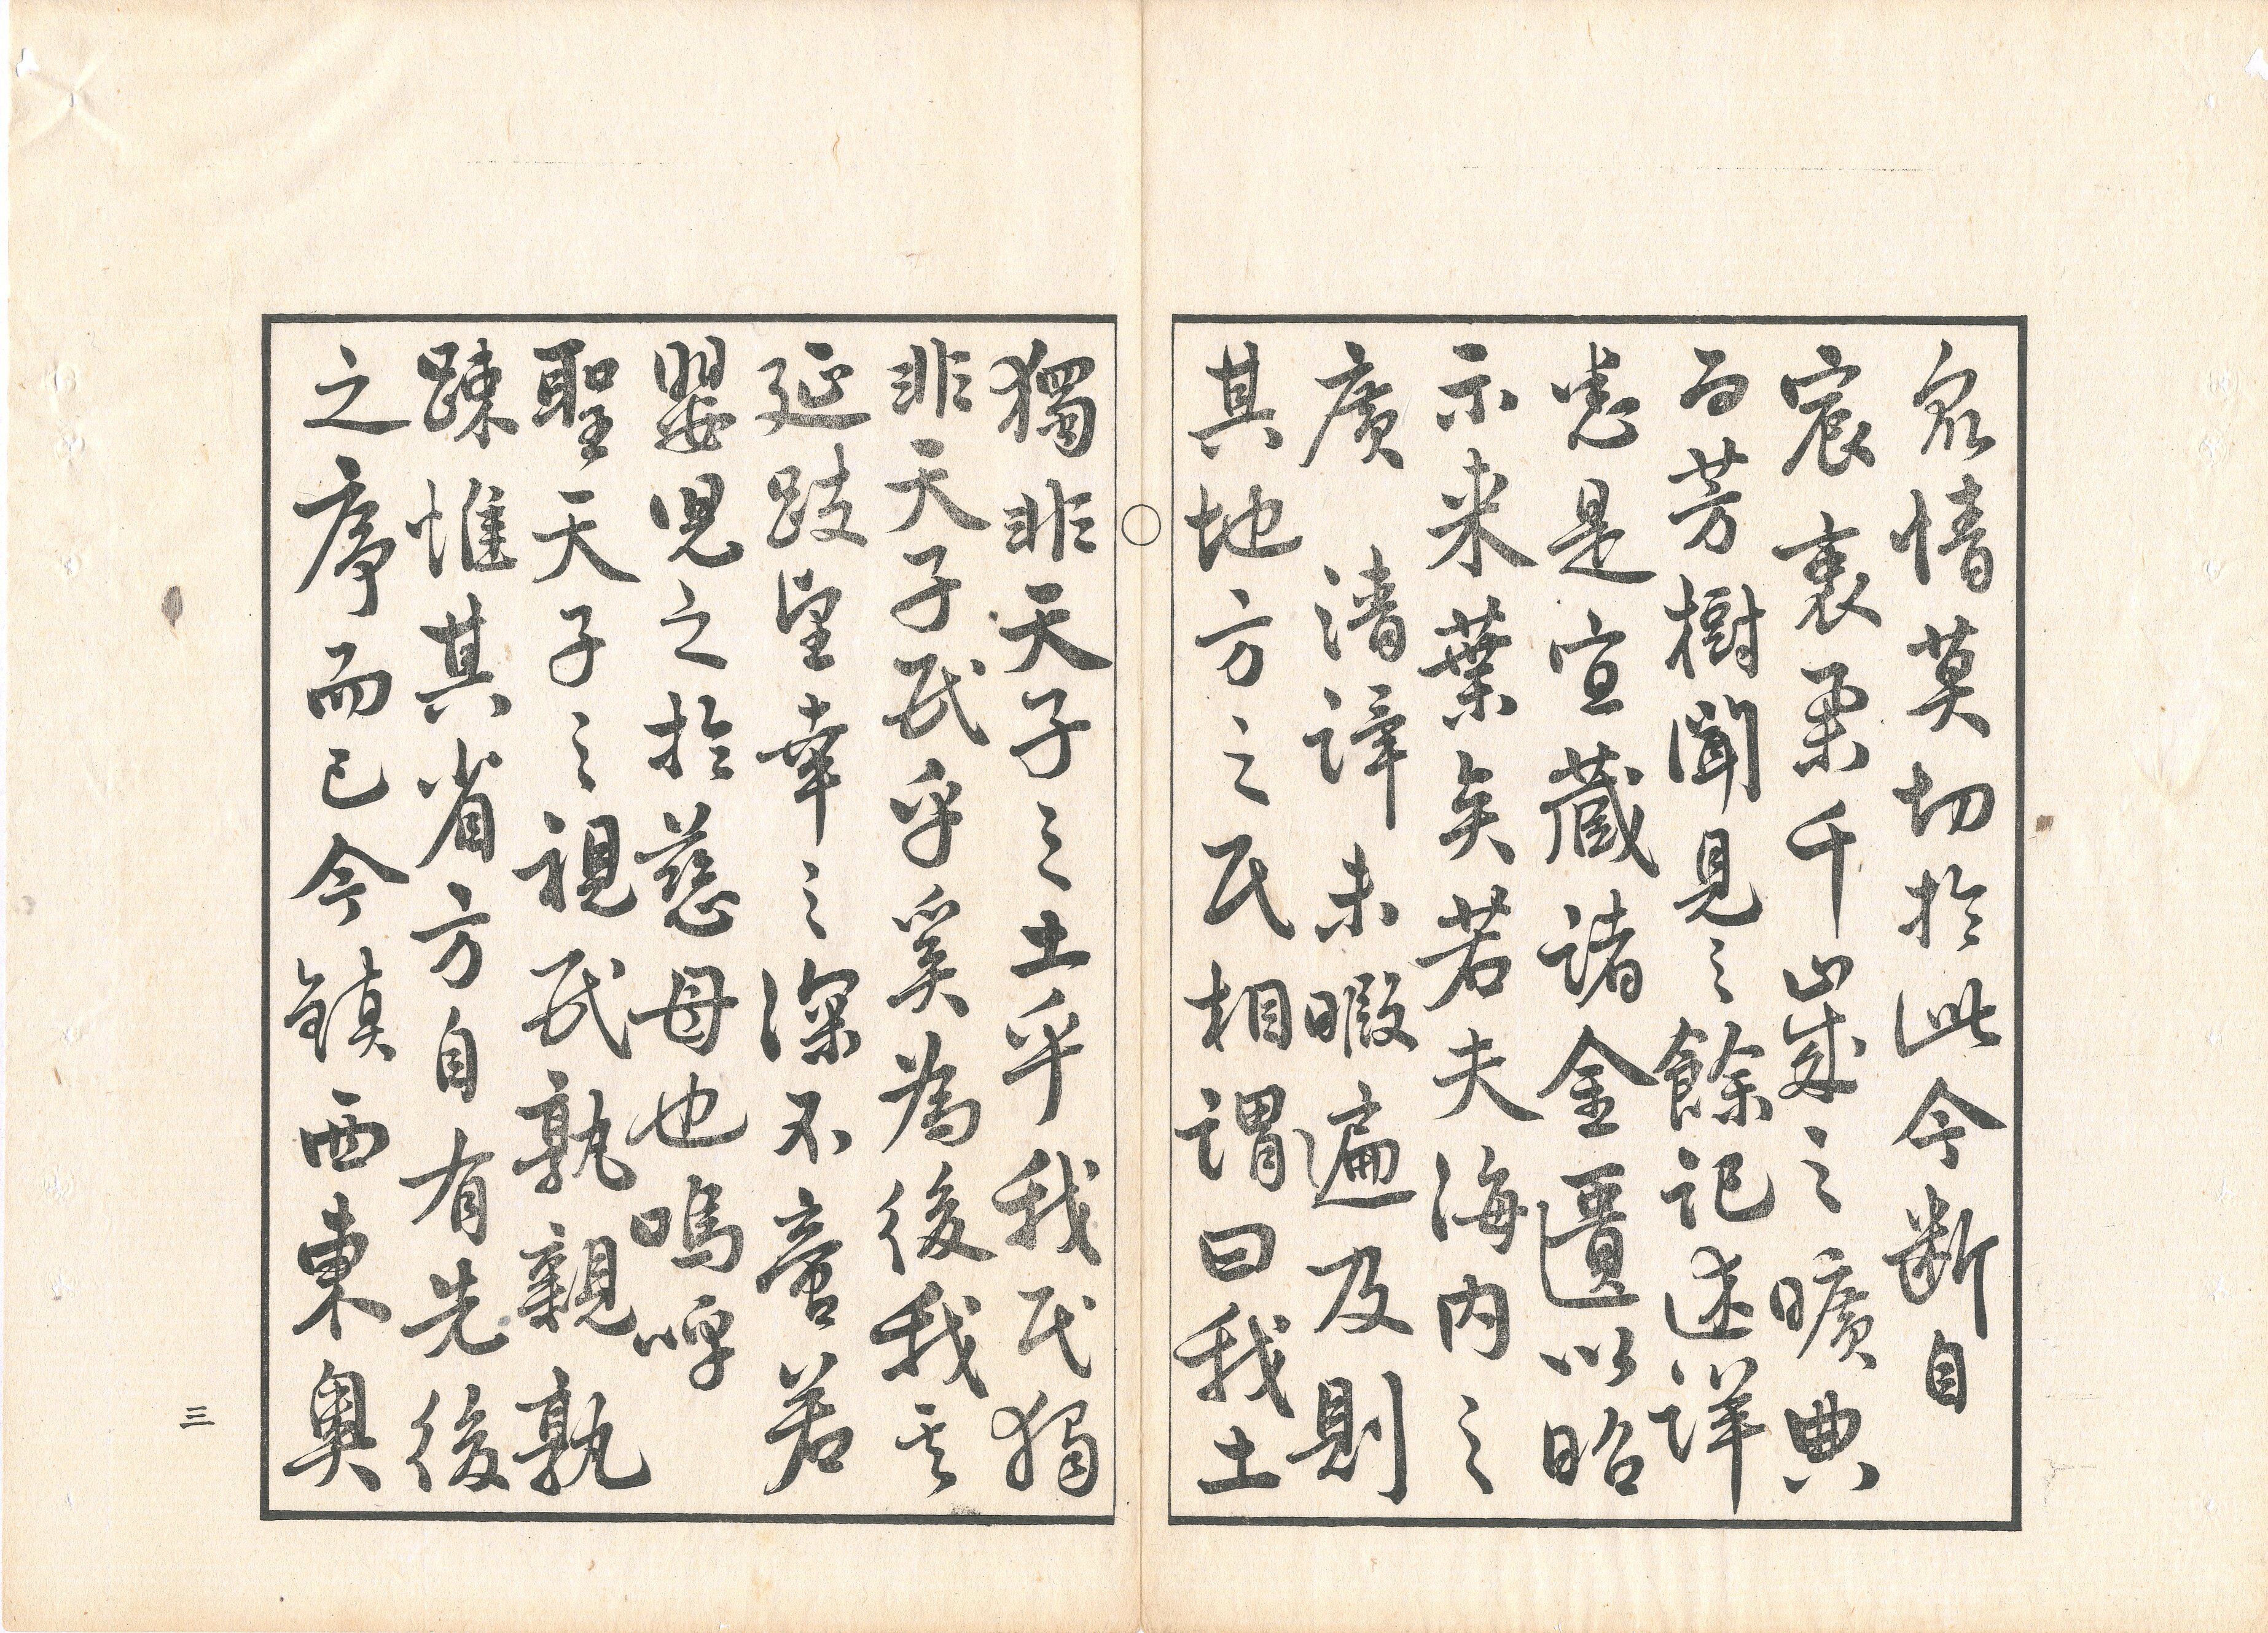 衆情莫切於此今断自
宸衷案千歳之曠典
而芳樹聞見之餘記述詳
悉是宜蔵諸金匱以昭
示来葉矣若夫海内之
廣清蹕未暇遍及則
其地方之民相謂曰我土
獨非天子之土乎我民獨
非天子民乎奚為後我其
延跂望幸之深不啻若
嬰児之於慈母也嗚呼
聖天子之視民孰親孰
踈惟其省方自有先後
之序而已今鎮西東奥
三